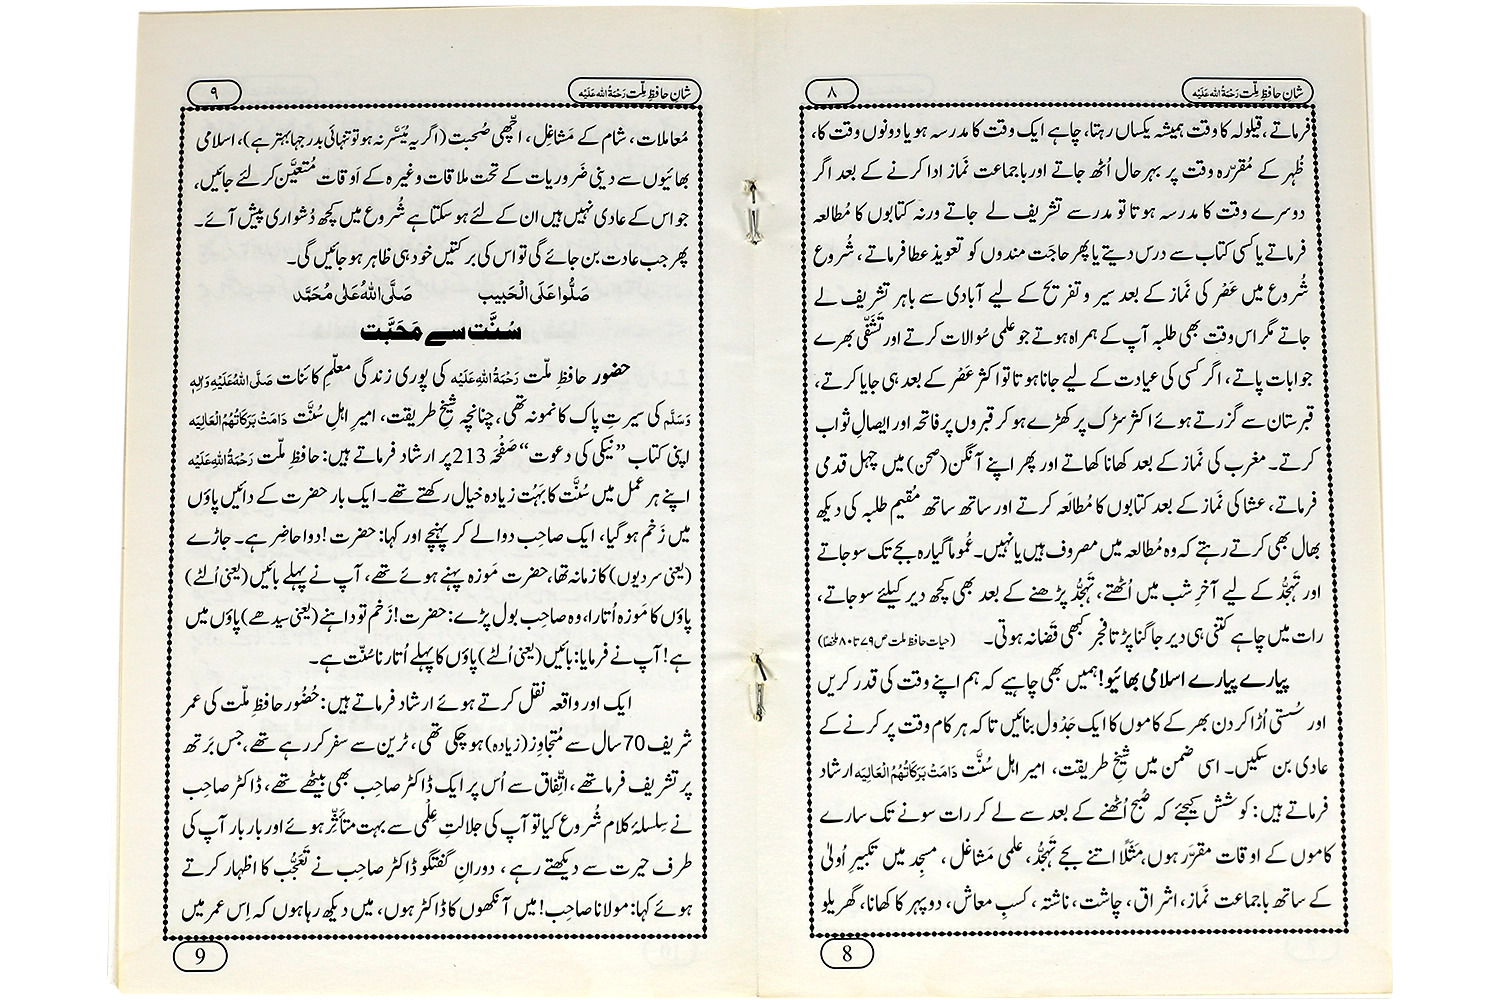 شانِ حافظِ ملّت رَحْمَۃُ اللہ عَلَیْہ
۸
فرماتے، قیلولہ کا وقت ہمیشہ یکساں رہتا، چاہے ایک وقت کا مدرسہ ہو یا دونوں وقت کا،
ظہر کے مُقرّرہ وقت پر بہر حال اُٹھ جاتے اور باجماعت نَماز ادا کرنے کے بعد اگر
دوسرے وقت کا مدرسہ ہوتا تو مدرسے تشریف لے جاتے ورنہ کتابوں کا مُطالعہ
فرماتے یا کسی کتاب سے درس دیتے یا پھر حاجت مندوں کو تعویذ عطا فرماتے، شُروع
شُروع میں عَصْر کی نَماز کے بعد سیر و تفریح کے لیے آبادی سے باہر تشریف لے
جاتے مگر اس وقت بھی طلبہ آپ کے ہمراہ ہوتے جو علمی سُوالات کرتے اور تَشَفّی بھرے
جوابات پاتے، اگر کسی کی عیادت کے لیے جانا ہوتا تو اکثر عَصْر کے بعد ہی جایا کرتے،
قبرستان سے گزرتے ہوئے اکثر سڑک پر کھڑے ہو کر قبروں پر فاتحہ اور ایصالِ ثواب
کرتے۔ مغرب کی نَماز کے بعد کھانا کھاتے اور پھر اپنے آنگن (صحن) میں چہل قدمی
فرماتے، عشا کی نَماز کے بعد کتابوں کا مُطالَعہ کرتے اور ساتھ ساتھ مُقیم طلبہ کی دیکھ
بھال بھی کرتے رہتے کہ وہ مُطالعہ میں مصروف ہیں یا نہیں۔ عُموماً گیارہ بجے تک سو جاتے
اور تَہَجُّد کے لیے آخرِ شب میں اُٹھتے، تَہَجُّد پڑھنے کے بعد بھی کچھ دیر کیلئے سو جاتے،
رات میں چاہے کتنی ہی دیر جاگنا پڑتا فجر کبھی قَضا نہ ہوتی۔ (حیات حافظ ملت ص۷۹تا۸۰ ملخصًا)
پیارے پیارے اسلامی بھائیو! ہمیں بھی چاہیے کہ ہم اپنے وقت کی قدر کریں
اور سُستی اُڑا کر دن بھر کے کاموں کا ایک جَدْوَل بنائیں تاکہ ہر کام وقت پر کرنے کے
عادی بن سکیں۔ اسی ضمن میں شیخِ طریقت، امیرِ اہلِ سُنَّت دَامَتْ بَرَکَاتُہُمُ الْعَالِیَہ ارشاد
فرماتے ہیں: کوشش کیجئے کہ صُبح اُٹھنے کے بعد سے لے کر رات سونے تک سارے
کاموں کے اوقات مقرّر ہوں، مَثَلًا اتنے بجے تَہَجُّد، علمی مَشاغل، مسجد میں تکبیرِ اُولیٰ
کے ساتھ باجماعت نَماز، اشراق، چاشت، ناشتہ، کسبِ معاش، دوپہر کا کھانا، گھریلو
8
شانِ حافظِ ملّت رَحْمَۃُ اللہ عَلَیْہ
۹
مُعاملات، شام کے مَشاغِل، اچّھی صُحبت (اگر یہ مُیَسَّر نہ ہو تو تنہائی بدرجہا بہتر ہے)، اسلامی
بھائیوں سے دینی ضَروریات کے تحت ملاقات وغیرہ کے اَوقات مُتعیَّن کر لئے جائیں،
جو اس کے عادی نہیں ہیں ان کے لئے ہو سکتا ہے شُروع میں کچھ دُشواری پیش آئے۔
پھر جب عادت بن جائے گی تو اس کی برکتیں خود ہی ظاہر ہو جائیں گی۔
صَلُّوا عَلَی الْحَبِیب صَلَّی اللہُ عَلٰی مُحَمَّد
سُنَّت سے مَحَبَّت
حضور حافظِ ملّت رَحْمَۃُ اللہِ عَلَیْہ کی پوری زندگی معلّمِ کائنات صَلَّی اللہُ عَلَیْہِ وَاٰلِہٖ
وَسَلَّم کی سیرتِ پاک کا نمونہ تھی، چنانچہ شیخِ طریقت، امیرِ اہلِ سُنَّت دَامَتْ بَرَکَاتُہُمُ الْعَالِیَہ
اپنی کتاب ”نیکی کی دعوت“ صَفْحَہ 213 پر ارشاد فرماتے ہیں: حافظِ ملّت رَحْمَۃُ اللہِ عَلَیْہ
اپنے ہر عمل میں سُنَّت کا بَہُت زیادہ خیال رکھتے تھے۔ ایک بار حضرت کے دائیں پاؤں
میں زَخْم ہو گیا، ایک صاحب دوا لے کر پہنچے اور کہا: حضرت! دوا حاضِر ہے۔ جاڑے
(یعنی سردیوں) کا زمانہ تھا، حضرت مَوزہ پہنے ہوئے تھے، آپ نے پہلے بائیں (یعنی اُلٹے)
پاؤں کا مَوزہ اُتارا، وہ صاحب بول پڑے: حضرت! زَخْم تو داہنے (یعنی سیدھے) پاؤں میں
ہے! آپ نے فرمایا: بائیں (یعنی اُلٹے) پاؤں کا پہلے اُتارنا سُنّت ہے۔
ایک اور واقعہ نقل کرتے ہوئے ارشاد فرماتے ہیں: حُضُور حافظِ ملّت کی عمر
شریف 70 سال سے مُتجاوِز (زیادہ) ہو چکی تھی، ٹرین سے سفر کر رہے تھے، جس بَرتھ
پر تشریف فرما تھے، اتِّفاق سے اُس پر ایک ڈاکٹر صاحِب بھی بیٹھے تھے، ڈاکٹر صاحِب
نے سِلسلۂ کلام شُروع کیا تو آپ کی جلالتِ عِلْمی سے بہت متأثِّر ہوئے اور بار بار آپ کی
طرف حیرت سے دیکھتے رہے، دورانِ گفتگو ڈاکٹر صاحِب نے تَعَجُّب کا اظہار کرتے
ہوئے کہا: مولانا صاحِب! میں آنکھوں کا ڈاکٹر ہوں، میں دیکھ رہا ہوں کہ اِس عمر میں
9